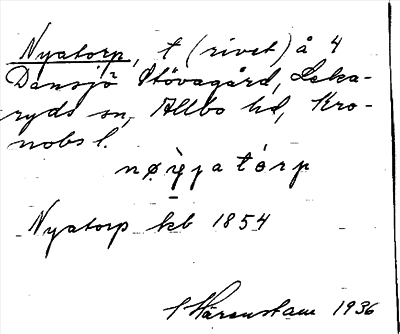 Nyatorp, t (rivet) å 4
Dansjö Stövagård, Leka-
ryds sn, Allbo hd, Kro-
nobs l.
nøyjatorp
Nyatorp kb 1854
Härenstam 1936